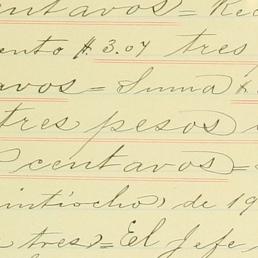 centavos = Rec
ento $ 3.07 tres
avos = Suma
tres pesos
centavos =
intiocho, de 19
tres) = El Jefe